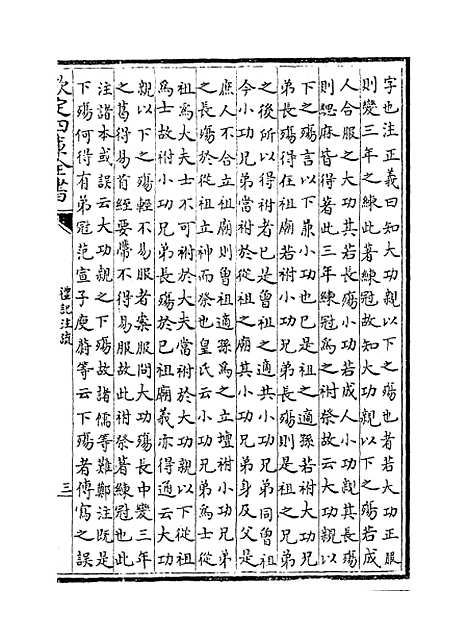 字也注正義曰知大功親以下之殤也者若大功正服
則變三年之練此著練冠故知大功親以下之殤若成
人合服之大功其若長殤小功若成人小功親其長殤
則緦麻皆得著此三年練冠為之祔祭故云大功親以
下之殤言以下兼小功也已是祖之適孫若祔大功兄
弟長殤得在祖廟若祔小功兄弟長殤則是祖之兄弟
之後所以得祔者已是曾祖之適共小功兄弟同曾祖
今小功兄弟當祔於從祖之廟其小功兄弟身及父是
庶人不合立祖廟則曾祖適孫為之立壇祔小功兄弟
之長殤於從祖立神而祭也皇氏云小功兄弟為士從
祖為大夫士不可祔於大夫當祔於大功親以下從祖
為士故祔小功兄弟長殤於已祖廟義亦得通云大功
親以下之殤輕不易服者案服問大功殤長中變三年
之葛得易首絰要帶不得易服故此祔祭著練冠也此
注諸本或誤云大功親之下殤故諸儒等難鄭注既是
下殤何得有弟冠范宣子庾蔚等云下殤者傳寫之誤
欽定四庫全書
禮記注疏
三